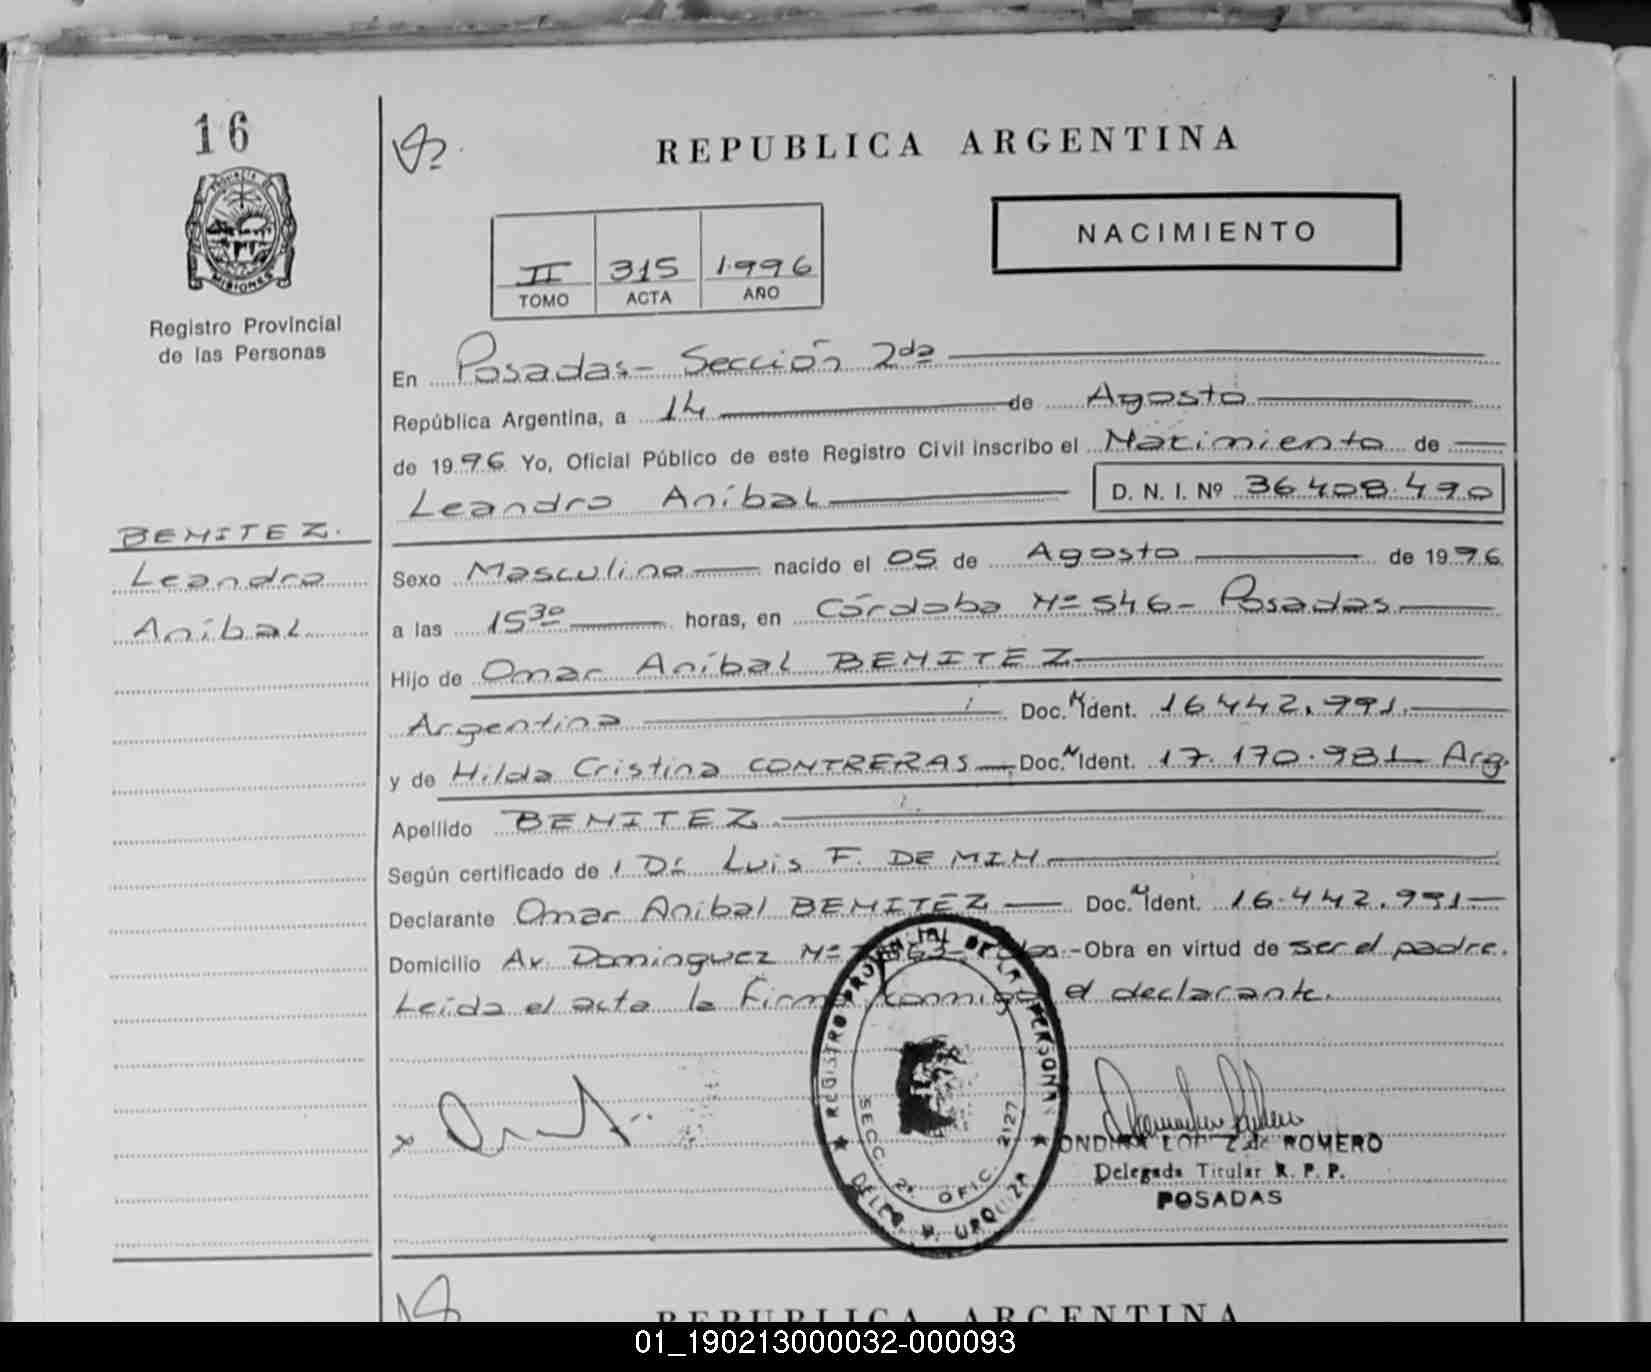 16
REPUBLICA ARGENTINA
PROVINCIA DE
MISIONES
Registro Provincial
de las Personas
NACIMIENTO
II 315 1.996
TOMO ACTA AÑO
En Posadas - Sección 2da
República Argentina, a 14 de Agosto
de 1996 Yo, Oficial Público de este Registro Civil inscribo el Nacimiento de
Leandro Aníbal D. N. I. Nº 36.408.490
BENITEZ.
Leandro
Aníbal
Sexo Masculino nacido el 05 de Agosto de 1996.
a las 15 30 horas, en Córdoba Nº 546 - Posadas
Hijo de Omar Aníbal BENITEZ
Argentina Doc. N Ident. 16.442.991.
y de Hilda Cristina CONTRERAS Doc. N Ident. 17.170.981 Arg.
Apellido BENITEZ
Según certificado de Dr Luis F. DE MIN
Declarante Omar Anibal BENITEZ Doc. N Ident. 16.442.991
Domicilio Av. Dominguez Nº - Obra en virtud de ser el padre.
Leída el acta la firma conmigo el declarante.
REGISTRO PROVINCIAL DE LAS PERSONAS
SECC. 2ª OFIC. 2127
DELEG. V. URQUIZA
DE ROMERO
Delegada Titular R. P. P.
POSADAS
REPUBLICA ARGENTINA
01_190213000032-000093